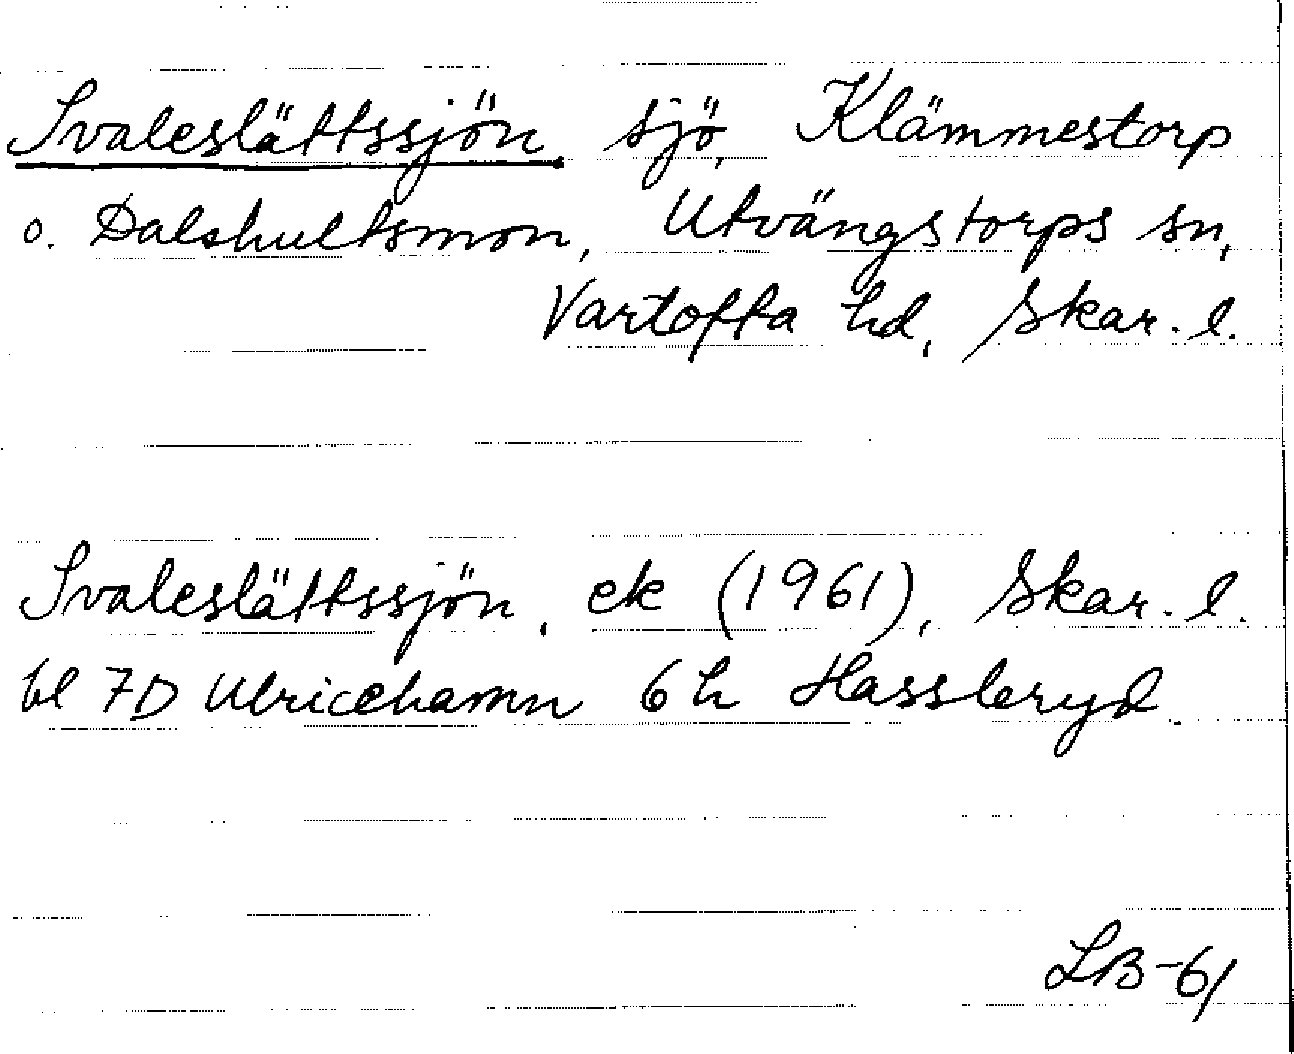 Svaleslättssjön, sjö, Klämmestorp
o. Dalshultsmon, Utvängstorps sn,
Vartofta hd, Skar. l.
Svaleslättssjön, ek (1961), Skar. l.
bl 7D Ulricehamn 6h Hassleryd.
LB-61